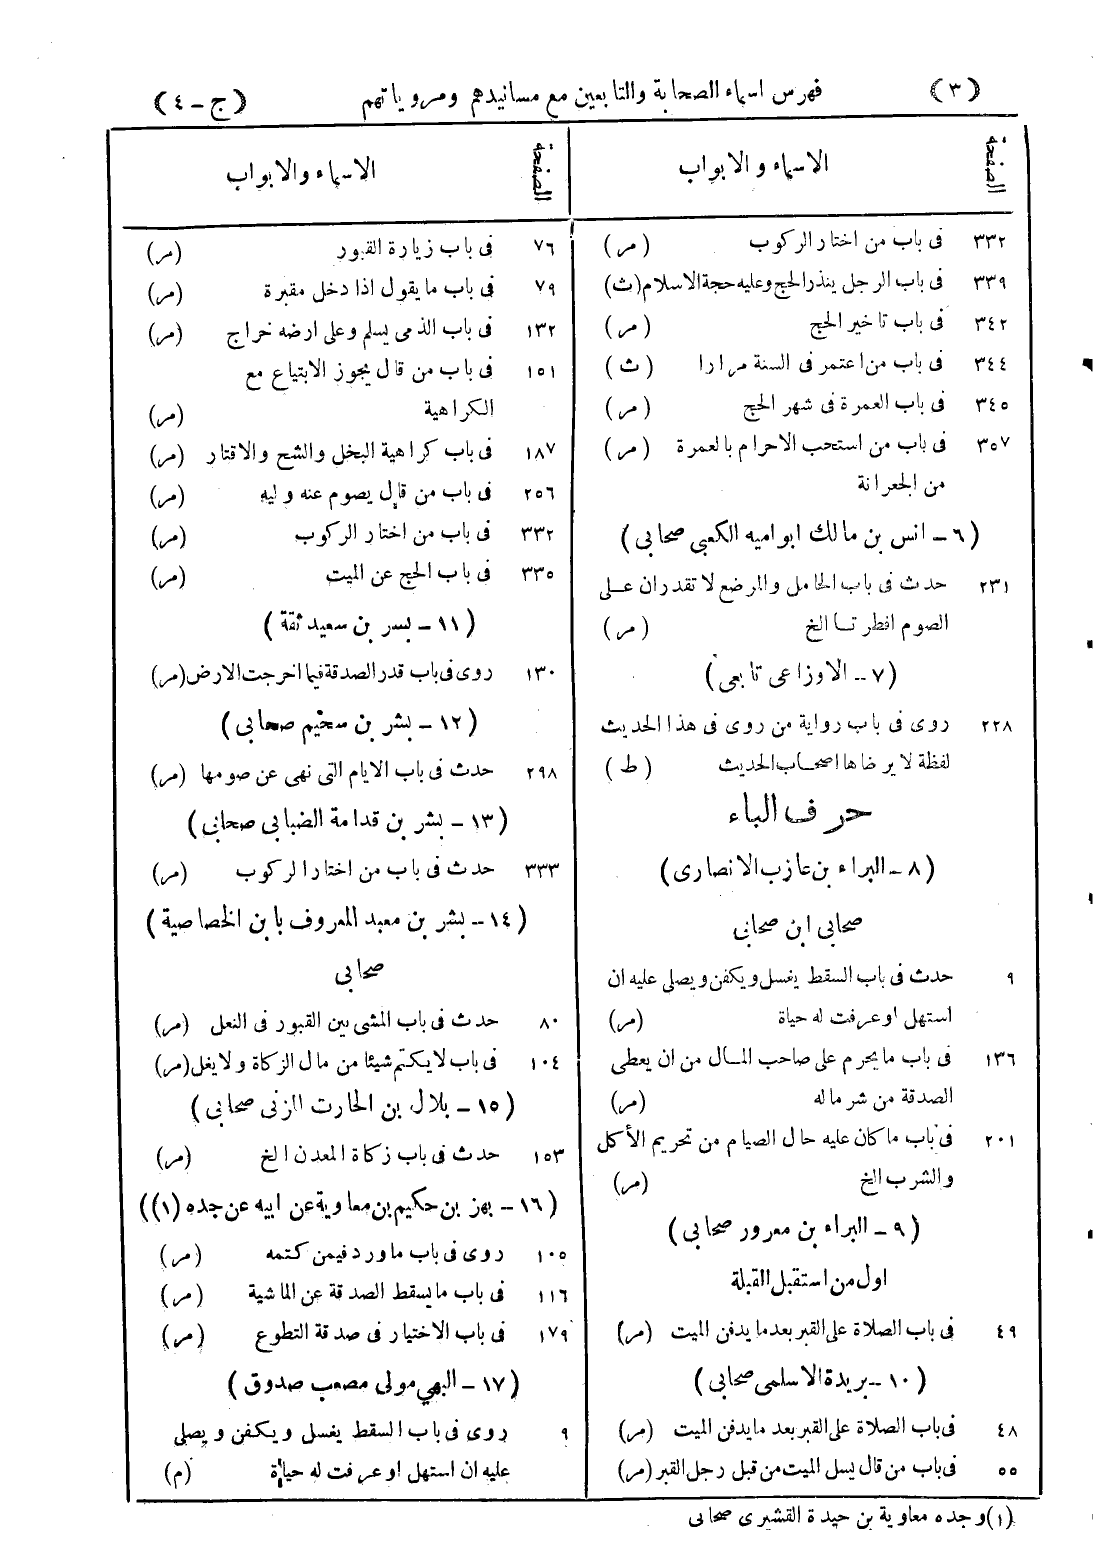 (٣) فهرس اسماء الصحابة والتابعين مع مسانيدهم ومروياتهم (ج-٤)
الصفحة الاسماء والابواب
٣٣٢ فى باب من اختار الركوب (مر)
٣٣٩ فى باب الرجل ينذر الحج وعليه حجة الاسلام (ث)
٣٤٢ فى باب تاخير الحج (مر)
٣٤٤ فى باب من اعتمر فى السنة مرارا (ث)
٣٤٥ فى باب العمرة فى شهر الحج (مر)
٣٥٧ فى باب من استحب الاحرام بالعمرة (مر)
من الجعرانة
(٦ - انس بن مالك ابو اميه الكعبي صحابى)
٢٣١ حدث فى باب الحامل والمرضع لا تقدران على
الصوم افطرتا الخ (مر)
(٧ - الاوزاعى تابعى)
٢٢٨ روى فى باب رواية من روى فى هذا الحديث
لفظة لا يرضاها اصحاب الحديث (ط)
حرف الباء
(٨ - البراء بن عازب الانصارى)
صحابى ابن صحابى
٩ حدث فى باب السقط يغسل ويكفن ويصلى عليه ان
استهل او عرفت له حياة (مر)
١٣٦ فى باب ما يحرم على صاحب المال من ان يعطى
الصدقة من شر ماله (مر)
٢٠١ فى باب ما كان عليه حال الصيام من تحريم الأكل
والشرب الخ (مر)
(٩ - البراء بن معرور صحابى)
اول من استقبل القبلة
٤٩ فى باب الصلاة على القبر بعد ما يدفن الميت (مر)
(١٠ - بريدة الاسلمى صحابى)
٤٨ فى باب الصلاة على القبر بعد ما يدفن الميت (مر)
٥٥ فى باب من قال يسل الميت من قبل رجل القبر (مر)
الصفحة الاسماء والابواب
٧٦ فى باب زيارة القبور (مر)
٧٩ فى باب ما يقول اذا دخل مقبرة (مر)
١٣٢ فى باب الذمى يسلم وعلى ارضه خراج (مر)
١٥١ فى باب من قال يجوز الابتياع مع
الكراهية (مر)
١٨٧ فى باب كراهية البخل والشح والاقتار (مر)
٢٥٦ فى باب من قال يصوم عنه وليه (مر)
٣٣٢ فى باب من اختار الركوب (مر)
٣٣٥ فى باب الحج عن الميت (مر)
(١١ - بسر بن سعيد ثقة)
١٣٠ روى فى باب قدر الصدقة فيما اخرجت الارض (مر)
(١٢ - بشر بن سحيم صحابى)
٢٩٨ حدث فى باب الايام التى نهى عن صومها (مر)
(١٣ - بشر بن قدامة الضبابى صحابى)
٣٣٣ حدث فى باب من اختار الركوب (مر)
(١٤ - بشر بن معبد المعروف بابن الخصاصية)
صحابى
٨٠ حدث فى باب المشى بين القبور فى النعل (مر)
١٠٤ فى باب لا يكتم شيئا من مال الزكاة ولا يغل (مر)
(١٥ - بلال بن الحارث المزنى صحابى)
١٥٣ حدث فى باب زكاة المعدن الخ (مر)
(١٦ - بهز بن حكيم بن معاوية عن ابيه عن جده (١))
١٠٥ روى فى باب ماورد فيمن كتمه (مر)
١١٦ فى باب ما يسقط الصدقة عن الماشية (مر)
١٧٩ فى باب الاختيار فى صدقة التطوع (مر)
(١٧ - البهي مولى مصعب صدوق)
٩ روى فى باب السقط يغسل ويكفن ويصلى
عليه ان استهل او عرفت له حياة (م)
(١) وجده معاوية بن حيدة القشيرى صحابى